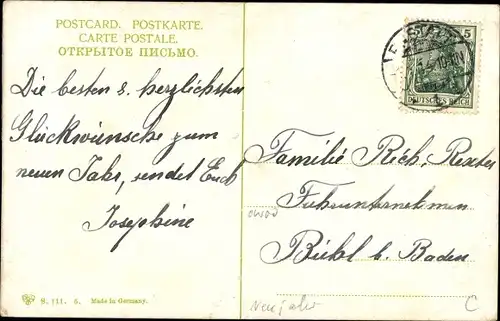 POSTCARD. POSTKARTE.
CARTE POSTALE.
ОТКРЫТОЕ ПИСЬМО.
Die besten & herzlichsten
Glückwünsche zum
neuen Jahr, sendet Euch
Josephine
5
DEUTSCHES REICH
Familie Rich. Rexter
Fuhrunternehmen
Bühl b. Baden
Neujahr
C
S. 111. 6. Made in Germany.